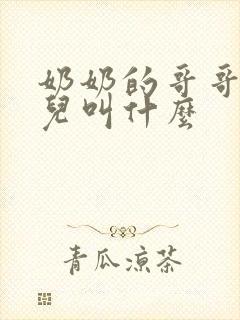 奶奶的哥哥
兒叫什麼
青瓜涼茶